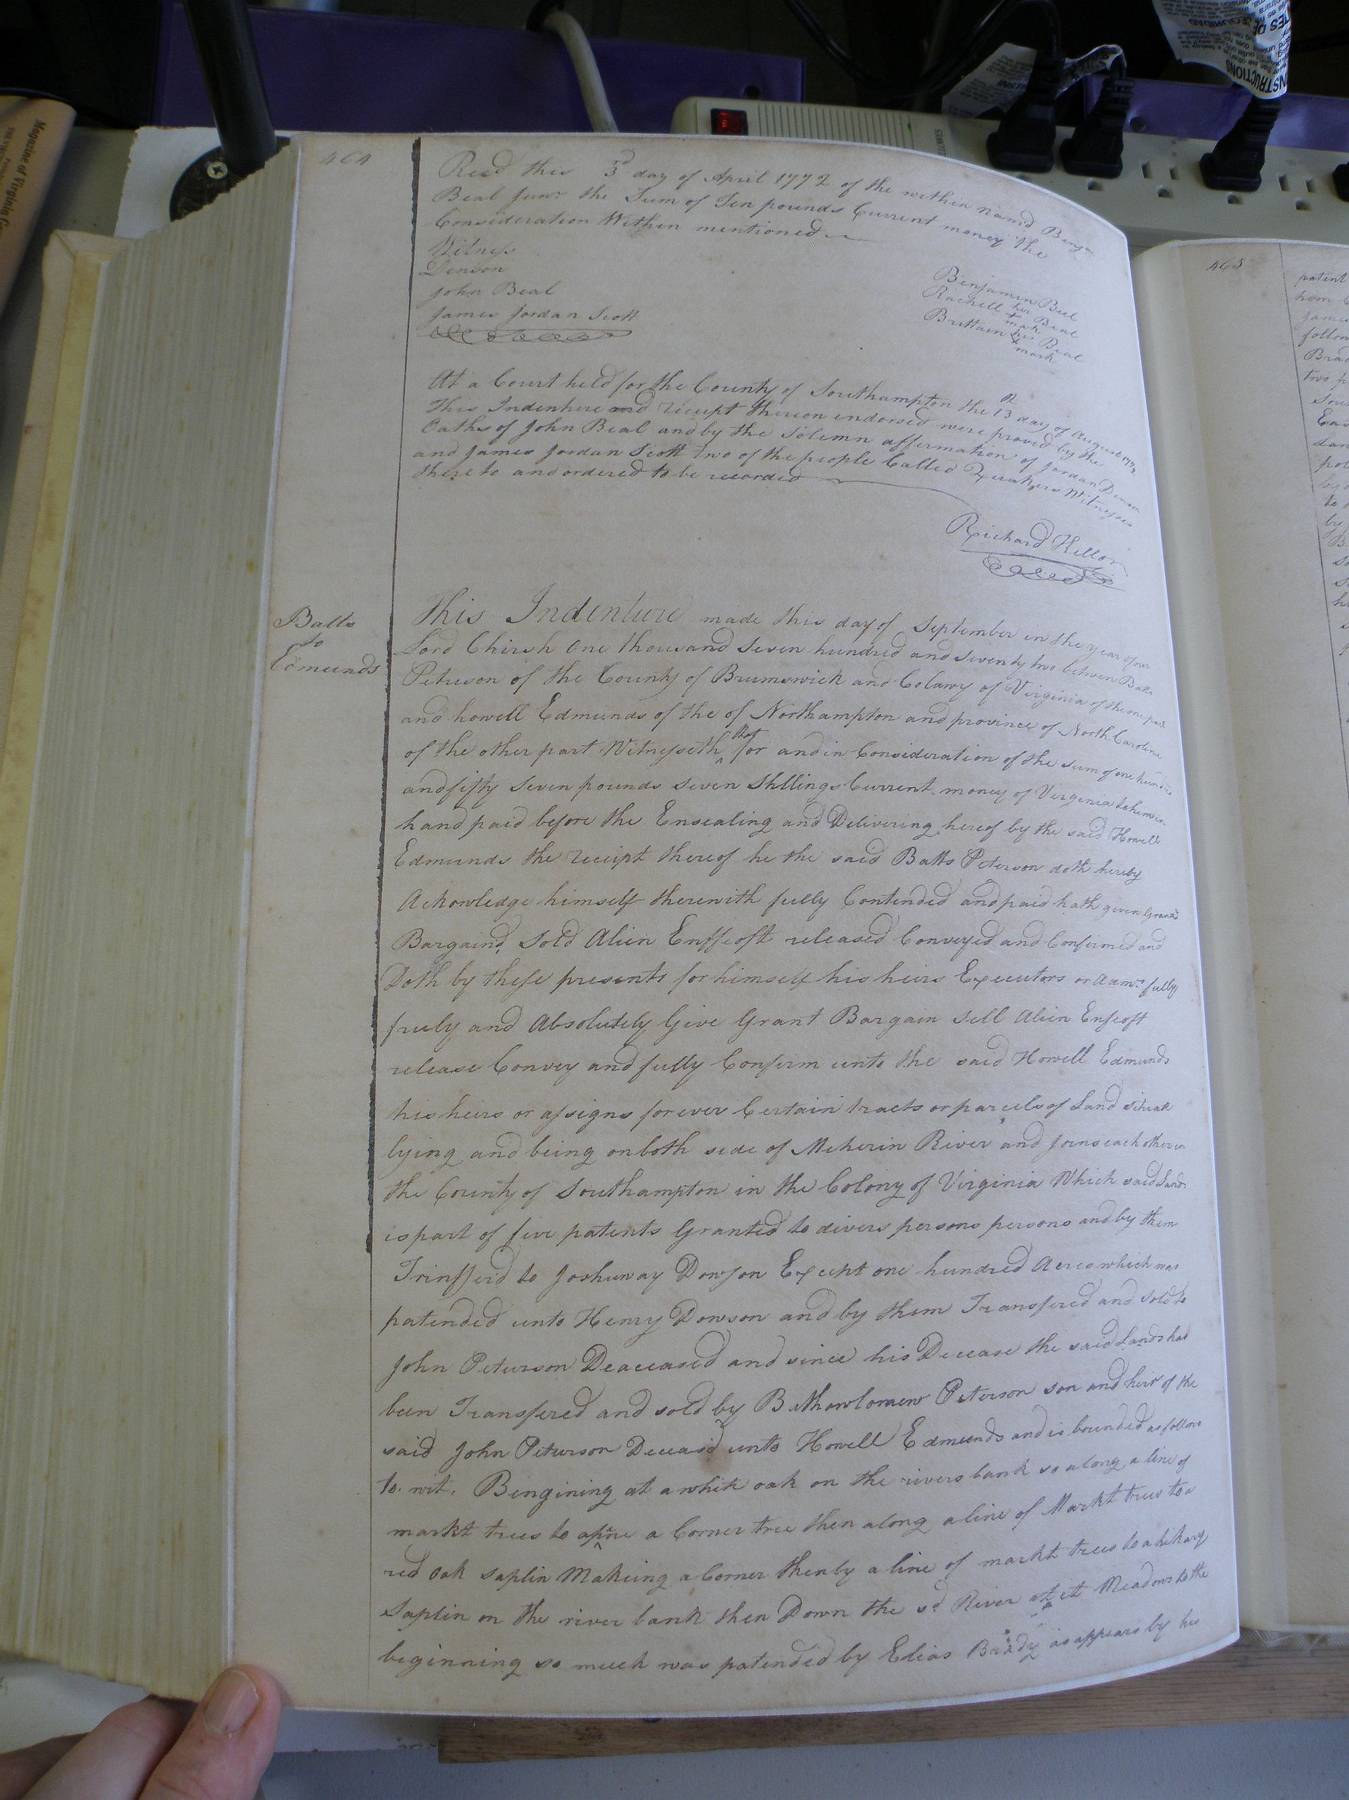 464
Recd this 3d day of April 1772 of the within namd Benjn
Beal Junr the Sum of Ten pounds Current money the
Consideration Within mentioned
Witness
Denson
John Beal
James Jordan Scott
Benjamin Beal
Rachell her Beal
mark
Brittain his Beal
mark
At a Court held for the County of Southampton the 13 day of August 1772
This Indenture and receipt thereon endorsed were proved by the
Oaths of John Beal and by the Solemn affirmation of Jordan Denson
and James Jordan Scott two of the people Called Quakers Witnesses
thereto and ordered to be recorded
Richard Kello
Batts
to
Edmunds
This Indenture made this day of September in the year of our
Lord Chirsh One thousand Seven hundred and Seventy two between Batts
Peterson of the County of Brumswick and Colany of Virginia of the one part
and howell Edmunds of the of Northampton and province of North Carolina
of the other part Witnesseth that for and in Consideration of the sum of one hundred
and fifty Seven pounds Seven Shllings Current money of Virginia to him in
hand paid before the Ensealing and Delivering hereof by the said Howell
Edmunds the receipt thereof he the said Batts Peterson doth hereby
Acknowledge himself therewith fully Contended and paid hath given Granted
Bargaind Sold Alien Enffeoft released Conveyed and Confirmed and
Doth by these presents for himself his heirs Executors or Admrs fully
freely and Absolutely Give Grant Bargain Sell Alien Enfeoft
release Convey and fully Confirm unto the said Howell Edmunds
his heirs or assigns for ever Certain tracts or parcels of Land situate
lying and being on both side of Meherin River and Joins each other in
the County of Southampton in the Colony of Virginia Which said Land
is part of five patents Granted to divers persons persons and by them
Trinsferd to Joshuway Dowson Except one hundred Acres which was
patended unto Henry Dowson and by them Transfered and sold to
John Peterson Deaceased and since his Decease the said Lands had
been Transfered and sold by Bathowlomew Peterson son and heir of the
said John Peterson Deceasd unto Howell Edmunds and is bounded as follows
to wit. Bengining at a white oak on the rivers bank so along a line of
markt trees to a pine a Corner tree then along a line of Markt trees to a
red oak saplin Makeing a Corner then by a line of markt trees to a hickary
Saplin on the river bank then Down the sd River at it Meadows to the
beginning so much was patended by Elias as appears by his
465
patent
from
James
follow
Brad
two
Sou
Eas
Magazine of Virginia
INSTRUCTIONS